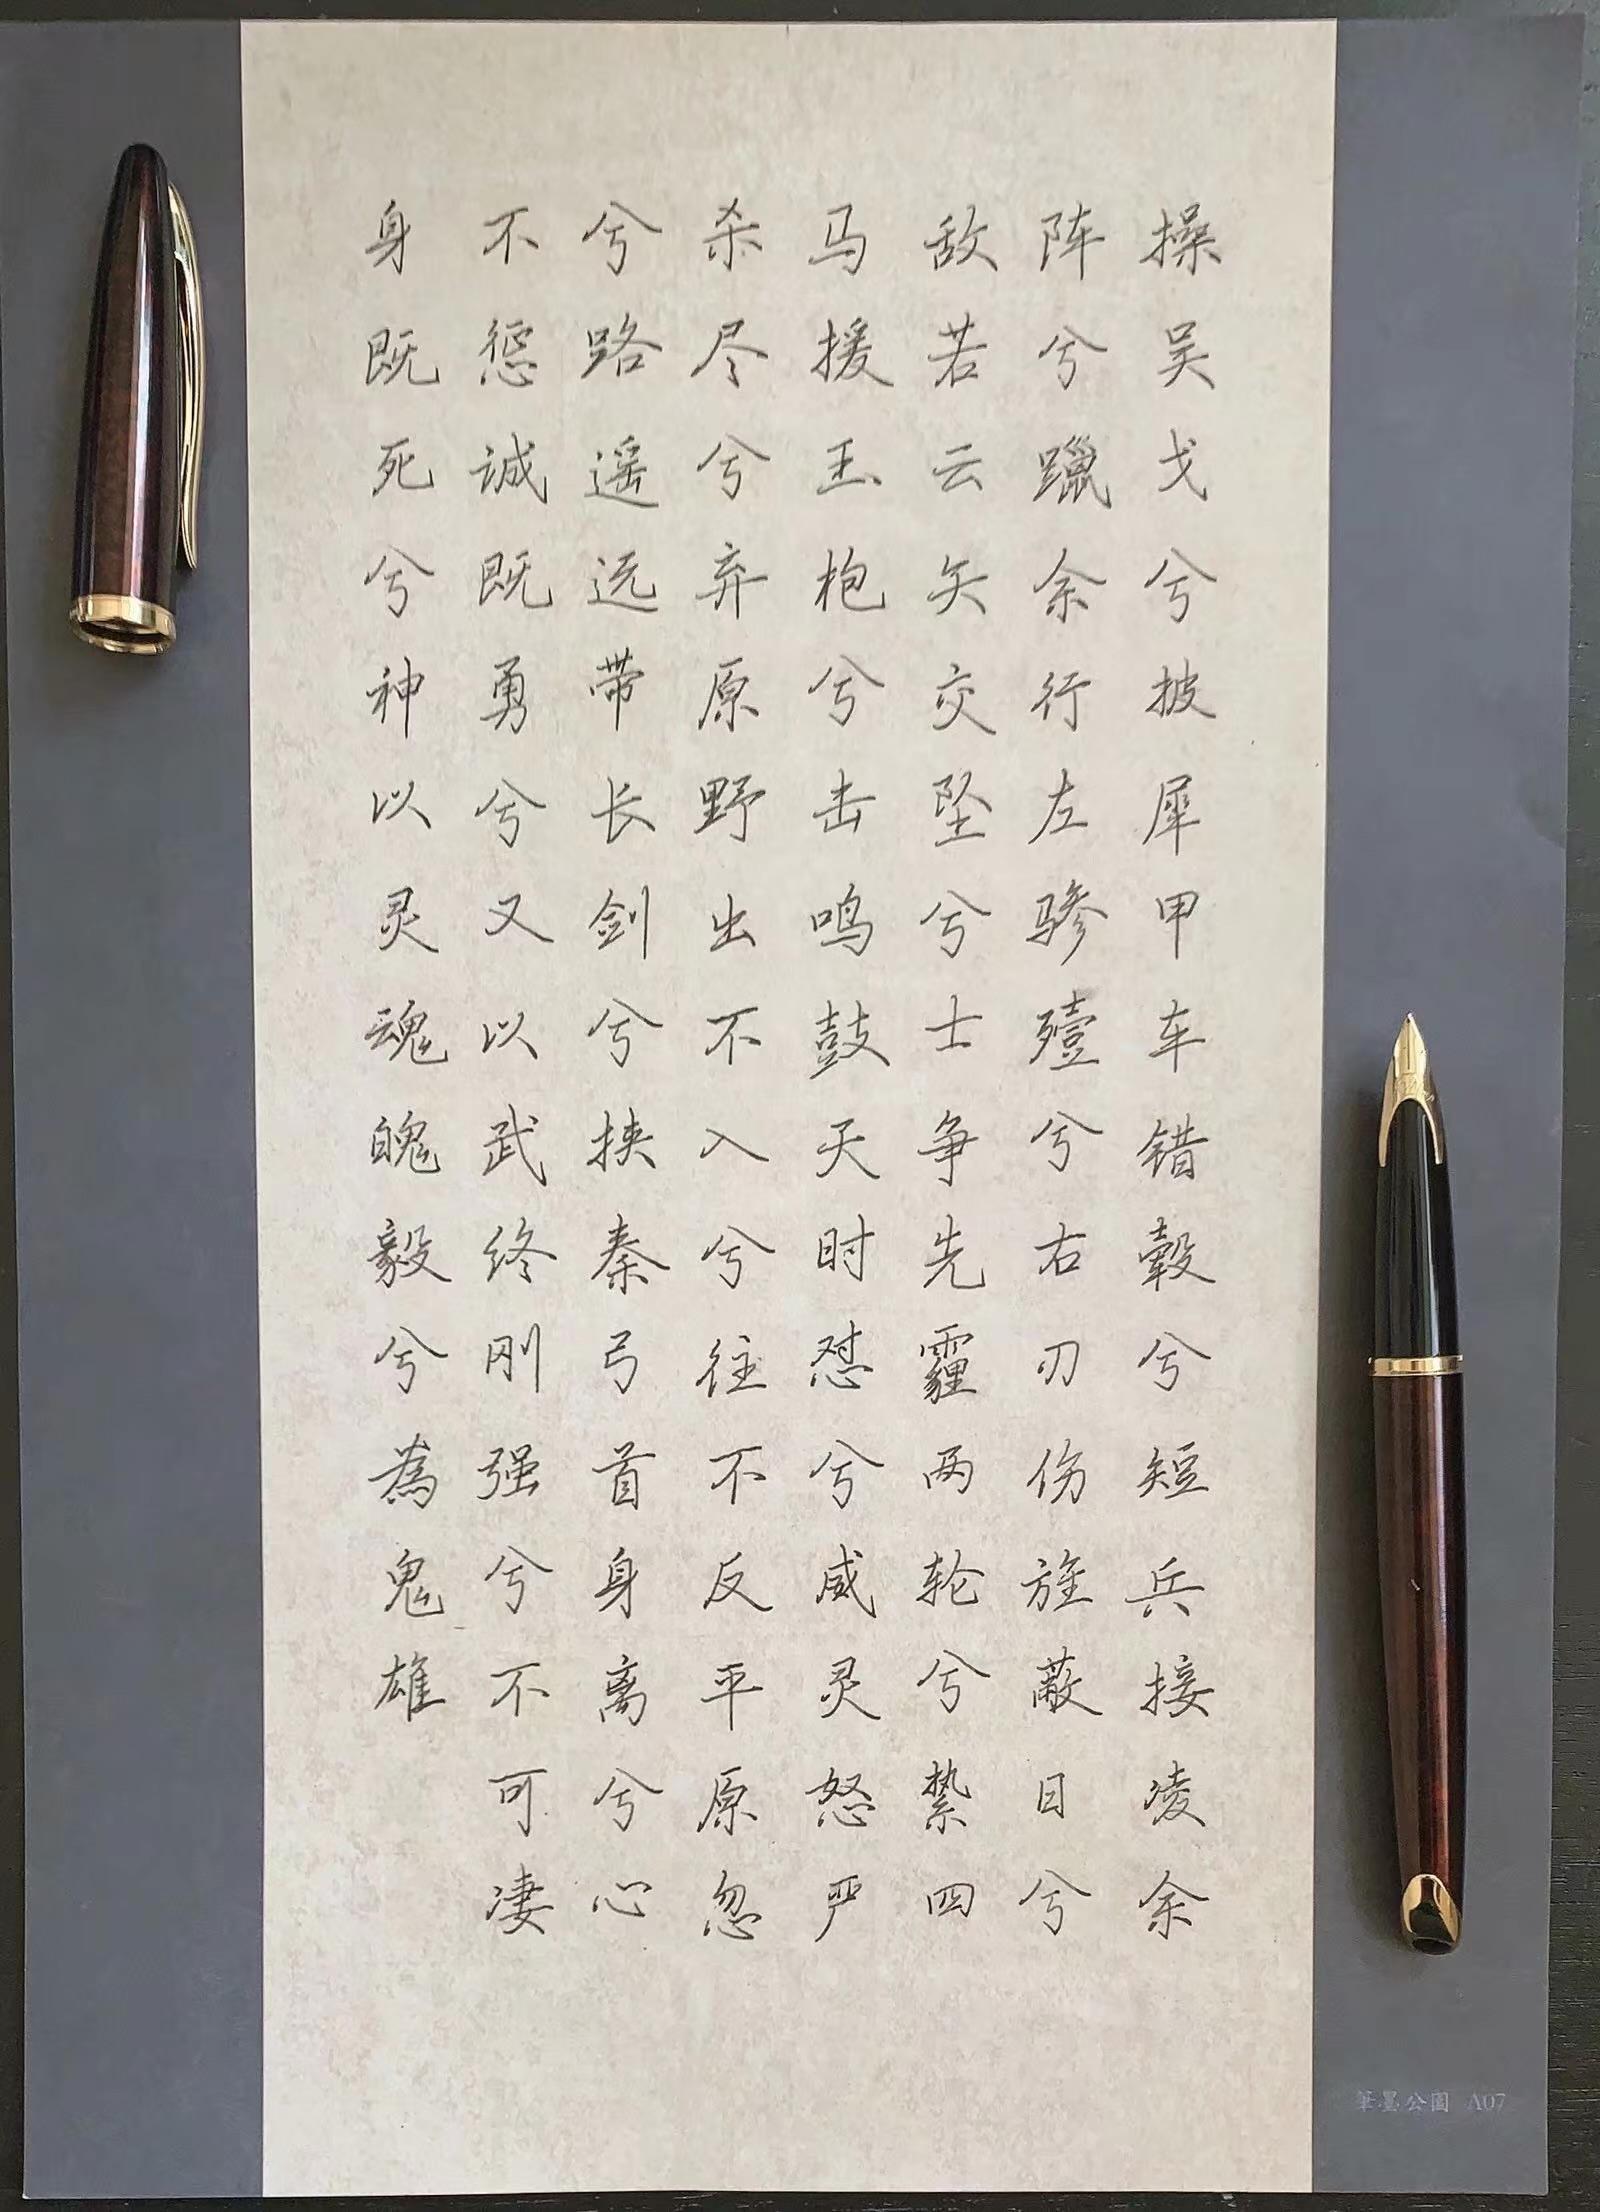 操吴戈兮披犀甲车错毂兮短兵接凌余
阵兮躐余行左骖殪兮右刃伤旌蔽日兮
敌若云矢交坠兮士争先霾两轮兮絷四
马援玉枹兮击鸣鼓天时怼兮威灵怒严
杀尽兮弃原野出不入兮往不反平原忽
兮路遥远带长剑兮挟秦弓首身离兮心
不惩诚既勇兮又以武终刚强兮不可凄
身既死兮神以灵魂魄毅兮為鬼雄
筆墨公園 A07